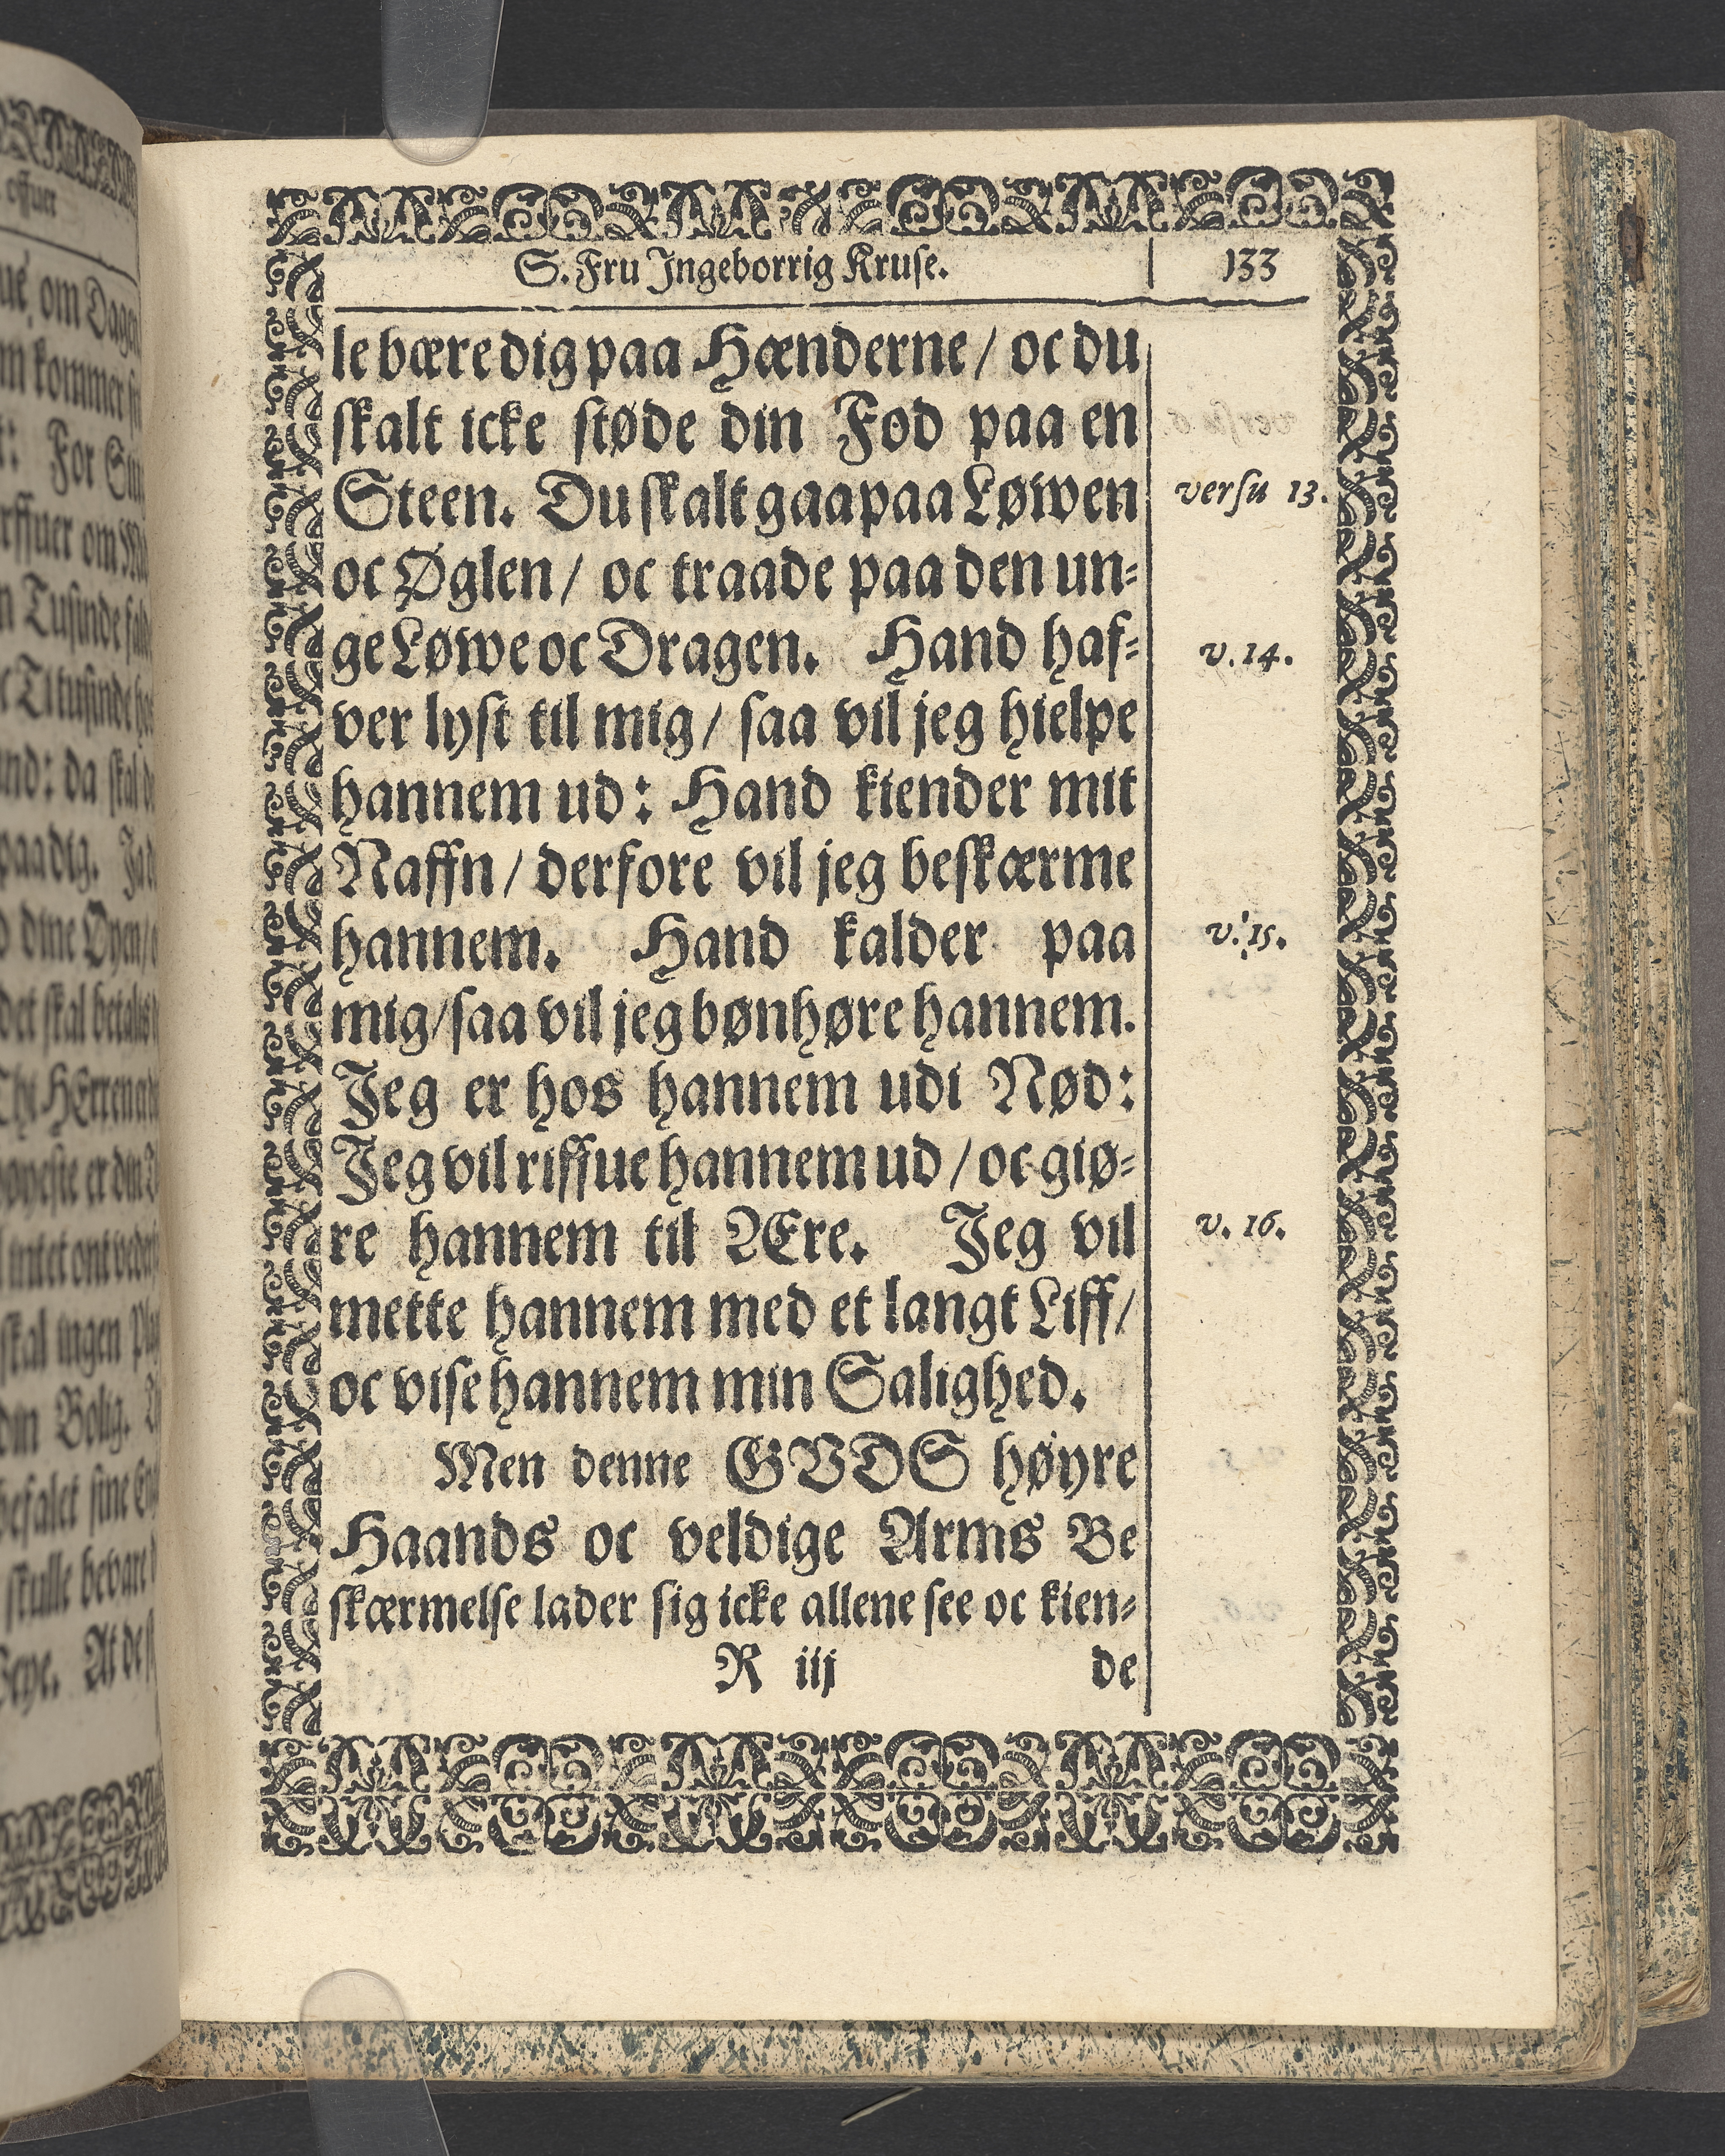 S. Fru Jngeborrig Kruse.
133
le bære dig paa Hænderne / oc du
skalt icke støde din Fod paa en
Steen. Du skalt gaa paa Løwen
versu 13.
oc Øglen / oc traade paa den un-
ge Løwe oc Dragen. Hand haf-
v. 14.
ver lyst til mig / saa vil jeg hielpe
hannem ud: Hand kiender mit
Naffn / derfore vil jeg beskærme
hannem. Hand kalder paa
v. 15.
mig / saa vil jeg bønhøre hannem.
Jeg er hos hannem udi Nød:
Jeg vil riffue hannem ud / oc giø-
re hannem til Ære. Jeg vil
v. 16.
mette hannem med et langt Liff /
oc vise hannem min Salighed.
Men denne GVDS høyre
Haands oc veldige Arms Be
skærmelse lader sig icke allene see oc kien-
R iij
de